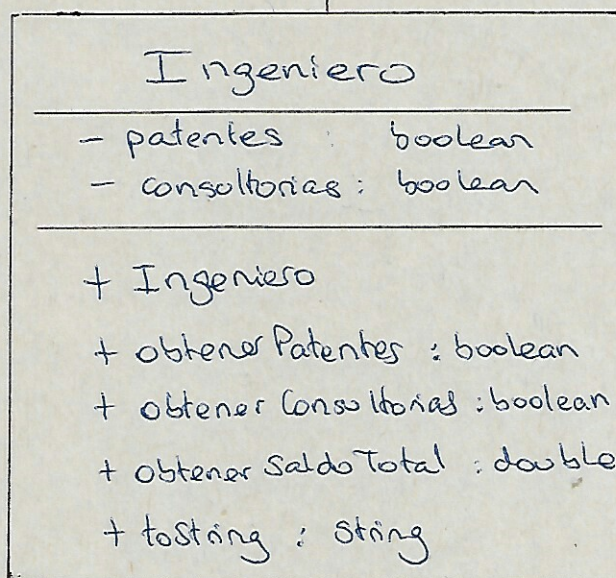 Ingeniero
- patentes : boolean
- consultorias : boolean
+ Ingeniero
+ obtener Patentes : boolean
+ obtener Consultorias : boolean
+ obtener Saldo Total : double
+ toString : String